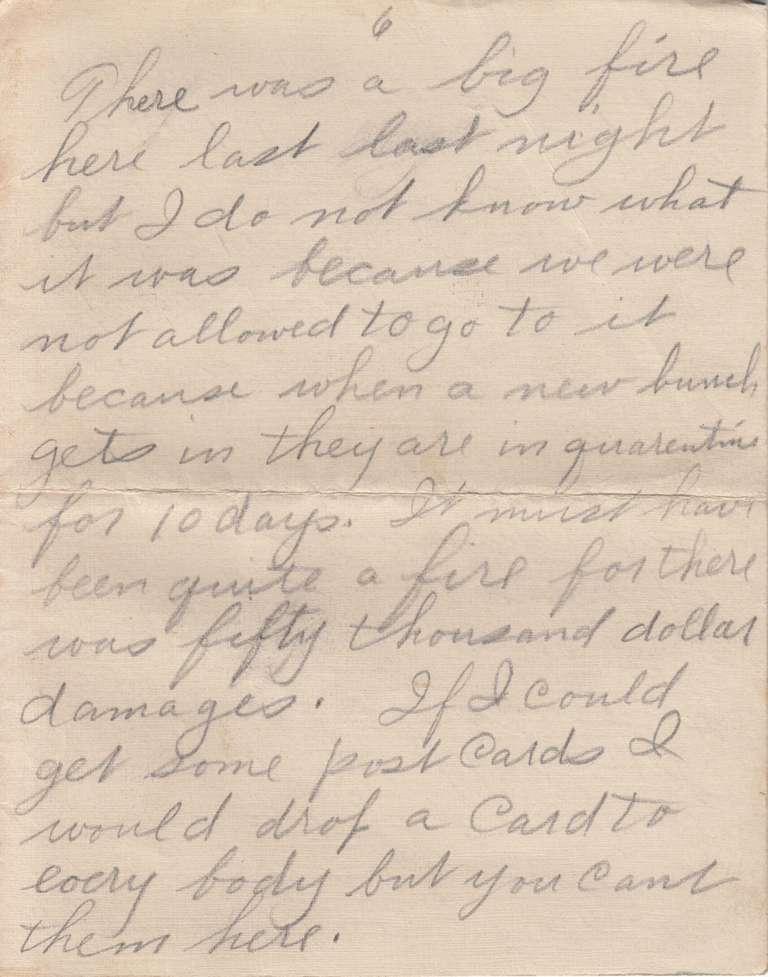 6
There was a big fire
here last last night
but I do not know what
it was because we were
not allowed to go to it
because when a new bunch
gets in they are in quarentine
for 10 days. It must have
been quite a fire for there
was fifty thousand dollar
damages. If I could
get some post cards I
would drop a card to
every body but you cant
them here.